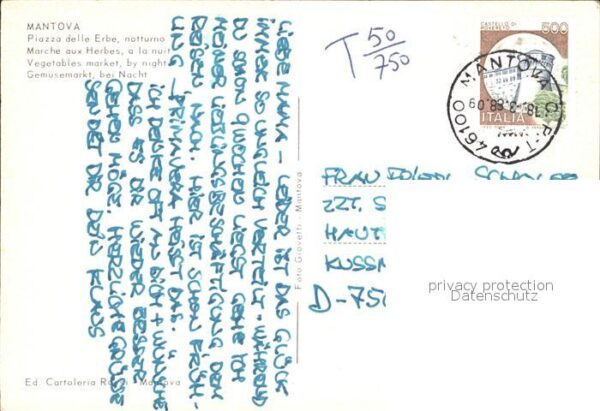 MANTOVA
Piazza delle Erbe, notturno
Marche aux Herbes, a la nuit
Vegetables market, by night
Gemusemarkt, bei Nacht
LIEBE MAMA – LEIDER IST DAS GLÜCK
IMMER SO UNGLEICH VERTEILT – WÄHREND
DU SCHON WOCHEN LIEGST GEHE ICH
MEINER LIEBLINGSBESCHÄFTIGUNG DEM
REISEN NACH. HIER IST SCHON FRÜH-
LING – PRIMAVERA HEISST DAS.
ICH DENKE OFT AN DICH + WÜNSCHE
DASS ES DIR WIEDER BESSER
GEHEN MÖGE. HERZLICHE GRÜSSE
SENDET DIR DEIN KLAUS
Ed. Cartoleria - Mantova
Foto Giovetti - Mantova
T 50/750
CASTELLO DI
ROVERETO
500
ITALIA
MANTOVA C.P.T.
18-3.88.09
46100
FRAU
ZZT. S
HAUT
KUSSM
D-750
privacy protection
Datenschutz